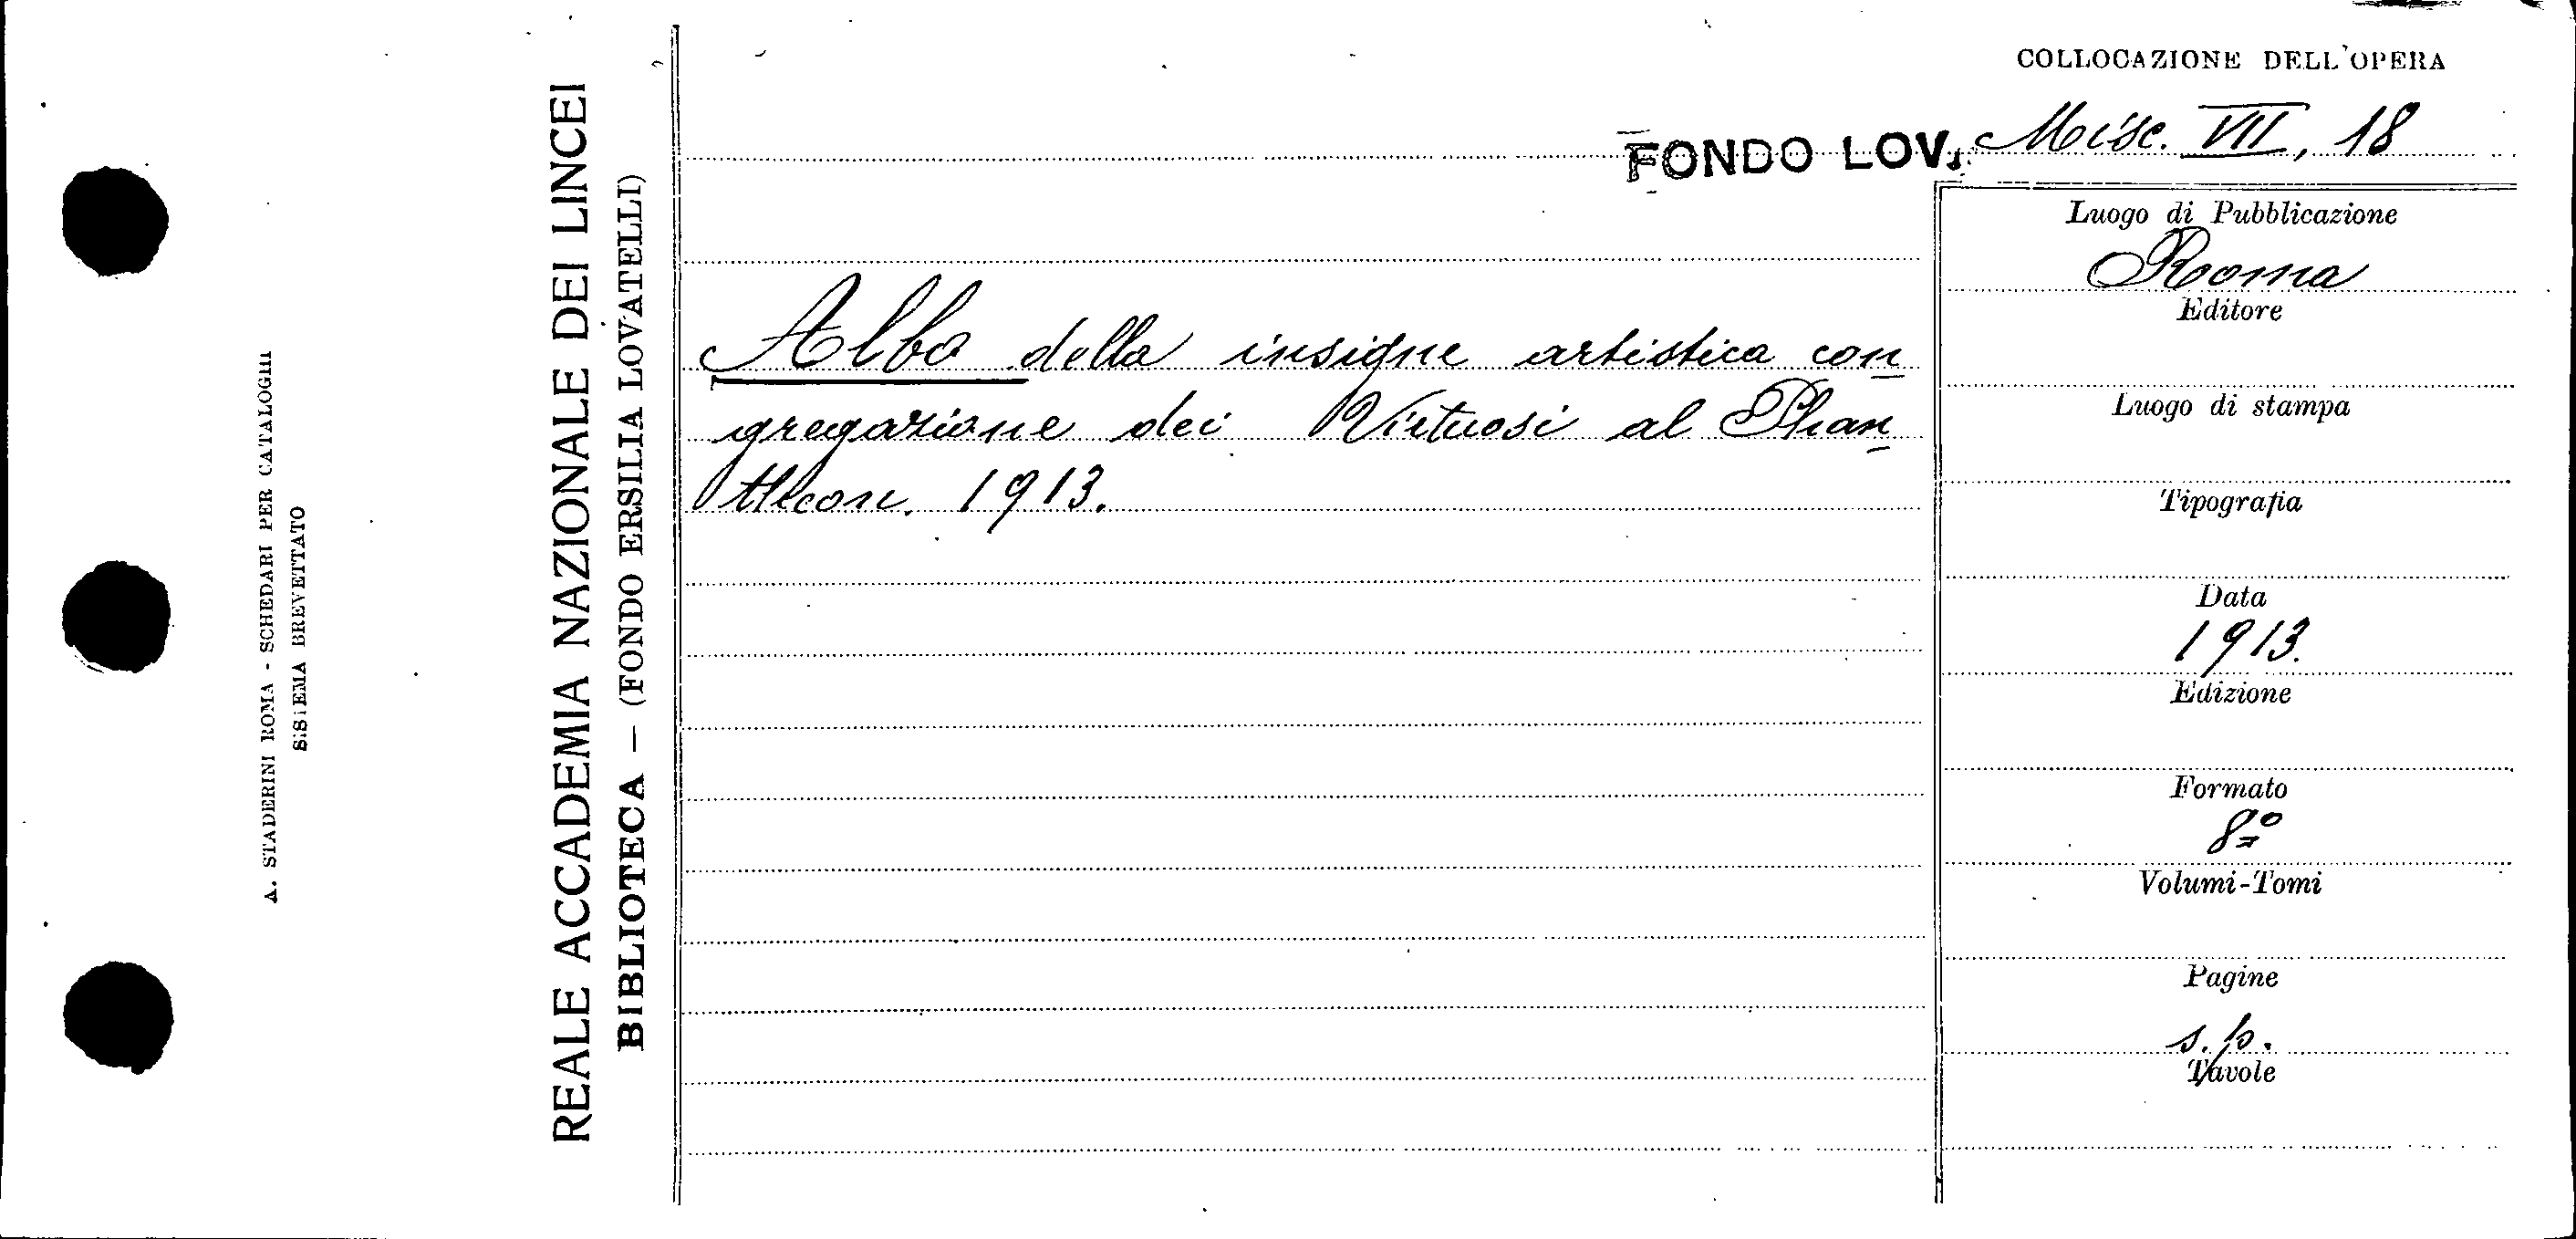 COLLOCAZIONE DELL'OPERA
FONDO LOV. Misc. VII, 18
Albo della insigne artistica con
gregazione dei Virtuosi al Phan
theon. 1913.
Luogo di Pubblicazione
Roma
Editore
Luogo di stampa
Tipografia
Data
1913.
Edizione
Formato
8º
Volumi-Tomi
Pagine
s. p.
Tavole
REALE ACCADEMIA NAZIONALE DEI LINCEI
BIBLIOTECA — (FONDO ERSILIA LOVATELLI)
A. STADERINI ROMA - SCHEDARI PER CATALOGHI
SISTEMA BREVETTATO